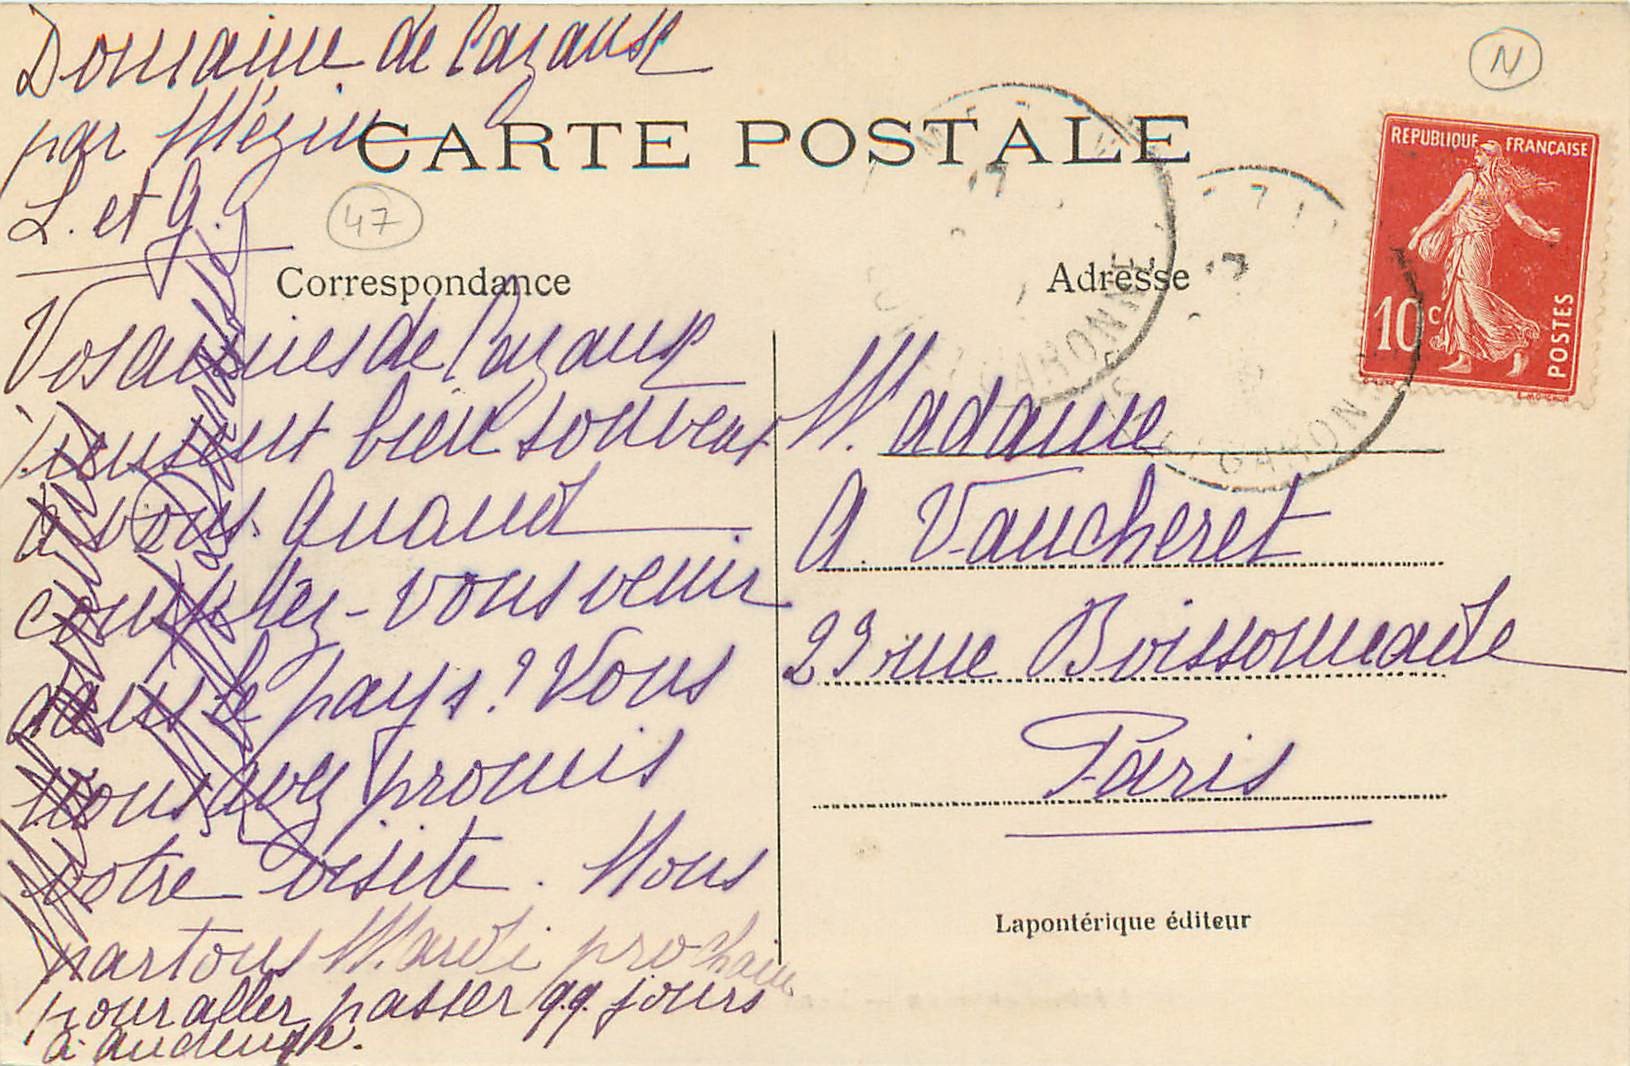 Domaine de Cazaux
par Mézin
L. et G.
CARTE POSTALE
N
47
REPUBLIQUE FRANÇAISE
10 c
POSTES
Correspondance
Adresse
GARONNE
GARONNE
Vos amies de Cazaux
pensent bien souvent
à vous. Quand
comptez-vous venir
dans le pays? Vous
nous avez promis
votre visite. Nous
partons Mardi prochain
pour aller passer qq. jours
à
Madame
A. Vaucheret
23 rue Boissonade
Paris
Lapontérique éditeur